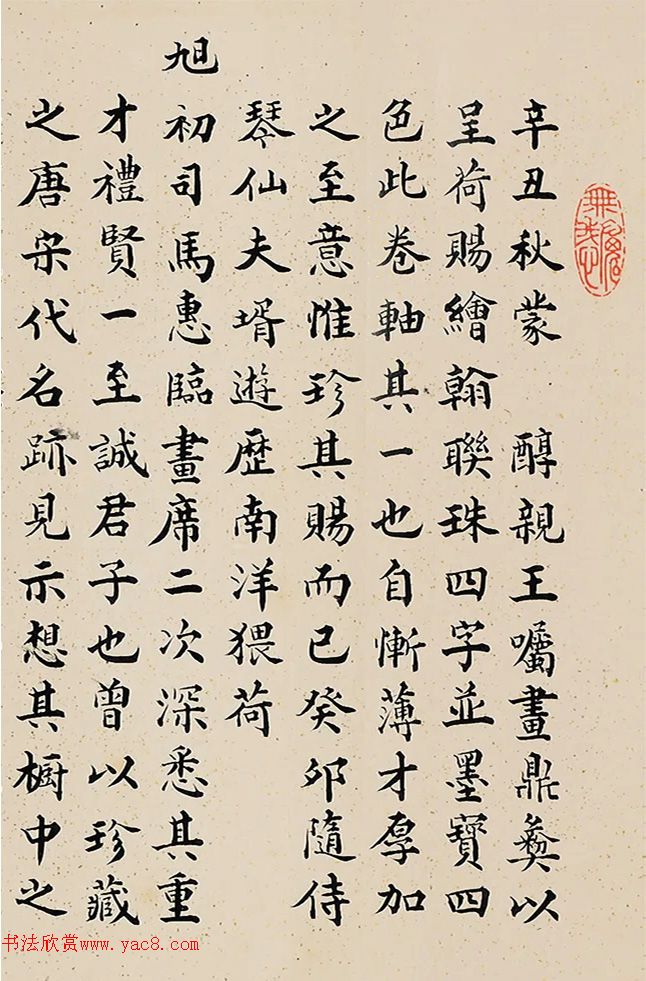 辛丑秋蒙 醇親王囑畫鼎彝以
呈荷賜繪翰聯珠四字並墨寶四
色此卷軸其一也自慚薄才厚加
之至意惟珍其賜而已癸卯隨侍
琴仙夫壻遊歷南洋猥荷
旭初司馬惠臨畫席二次深悉其重
才禮賢一至誠君子也曾以珍藏
之唐宋代名跡見示想其櫥中之
书法欣赏www.yac8.com